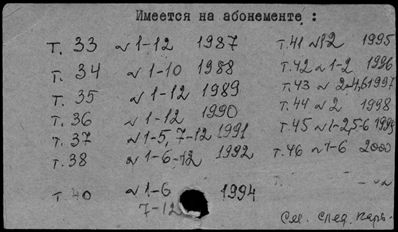 Имеется на абонементе :
т. 33 № 1-12 1987
т. 34 № 1-10 1988
т. 35 № 1-12 1989
т. 36 № 1-12 1990
т. 37 № 1-5, 7-12 1991
т. 38 № 1-6-12 1992
т. 40 № 1-6 1994
7-12
т. 41 №12 1995
т. 42 № 1-2 1996
т. 43 № 2-4,6 1997
т. 44 № 2 1998
т. 45 № 1-2,5-6 1999
т. 46 № 1-6 2000
т.
См. след. карт.